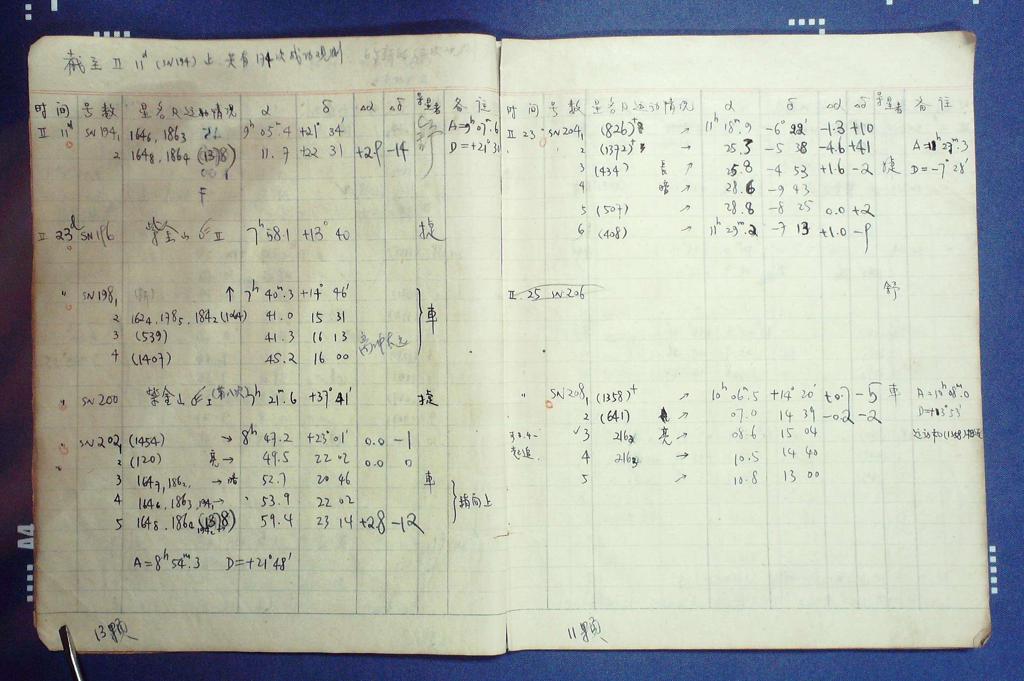 截至 II 11d (SN194) 止 共有 174 次成功观测
时间 号数 星名及运动情况 α δ Δα Δδ 寻星者 备注
II 11d SN194,1 1646, 1863 9h 05m.4 +21° 34' A=9h 07m.6
2 1648, 1864 (1378) 11.7 +22 31 +29 -14 D=+21°31'
II 23d SN196 紫金山 II 7h 58.1 +13° 40 捷
" SN198,1 ↑ 7h 40m.3 +14° 46'
2 1624, 1785, 1842 (1064) 41.0 15 31 車
3 (539) 41.3 16 13
4 (1407) 45.2 16 00
" SN200 紫金山 I (第八次) 7h 21m.6 +37° 41' 捷
SN202,1 (1454) → 8h 47.2 +23° 01' 0.0 -1
" 2 (120) 亮→ 49.5 22 02 0.0 0
3 1647, 1862, →暗 52.7 20 46 車
4 1646, 1863, 1941 → 53.9 22 02 指向上
5 1648, 1864 (1378) 59.4 23 14 +28 -12
A=8h 54m.3 D=+21°48'
13颗
时间 号数 星名及运动情况 α δ Δα Δδ 寻星者 备注
II 23 SN204,1 (826)+ → 11h 18m.9 -6° 22' -1.3 +10
" 2 (1372)+ → 25.3 -5 38 -4.6 +41 A=11h 27m.3
3 (434) 亮 ↗ 25.8 -4 53 +1.6 -2 捷 D=-7°28'
4 暗 ↗ 28.6 -9 43
5 (507) ↗ 28.8 -8 25 0.0 +2
6 (408) → 11h 29m.2 -7 13 +1.0 -9
II 25 SN206 舒
" SN208,1 (1358)+ → 10h 06m.5 +14° 20' +0.7 -5 車 A=10h 08m.0
2 (641) → 07.0 14 39 -0.2 -2 D=+13°53'
✓3 2162 亮 → 08.6 15 04
4 2163 → 10.5 14 40
5 ↗ 10.8 13 00
11颗